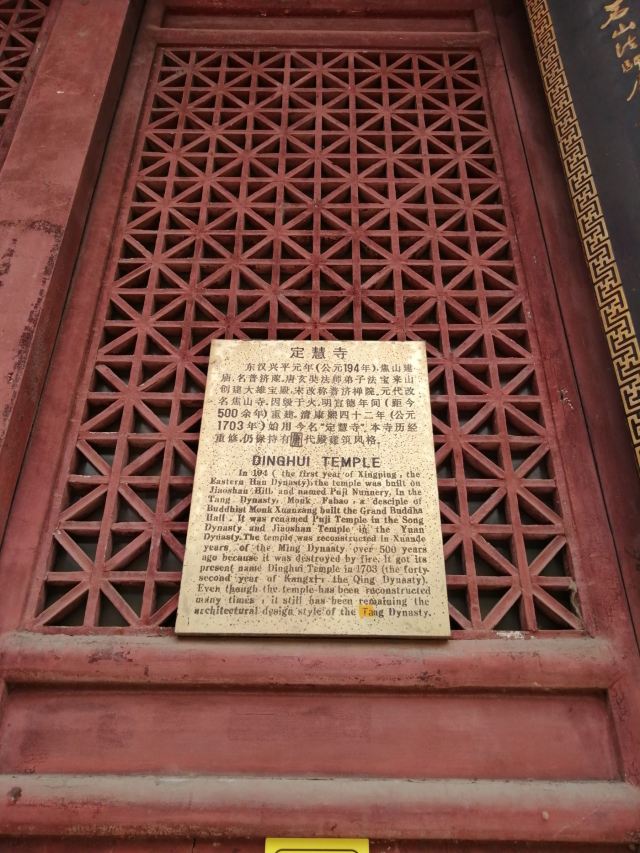 定慧寺
东汉兴平元年(公元194年),焦山建
庙,名普济庵,唐玄奘法师弟子法宝来山
创建大雄宝殿,宋改称普济禅院,元代改
名焦山寺,因毁于火,明宣德年间(距今
500余年)重建,清康熙四十二年(公元
1703年)始用今名"定慧寺"。本寺历经
重修,仍保持有 代殿建筑风格。
DINGHUI TEMPLE
In 194 ( the first year of Xingping, the
Eastern Han Dynasty), the temple was built on
Jiaoshan Hill and named Puji Nunnery, In the
Tang Dynasty, Monk Fabao, a desciple of
Buddhist Monk Xuanzang built the Grand Buddha
Hall. It was renamed Puji Temple in the Song
Dynasty and Jiaoshan Temple in the Yuan
Dynasty. The temple was reconstructed in Xuande
years of the Ming Dynasty over 500 years
ago because it was destroyed by fire. It got its
present name Dinghui Temple in 1703 (the forty-
second year of Kangxi, the Qing Dynasty).
Even though the temple has been reconstructed
many times, it still has been remaining the
architectural dysign style of the Tang Dynasty.